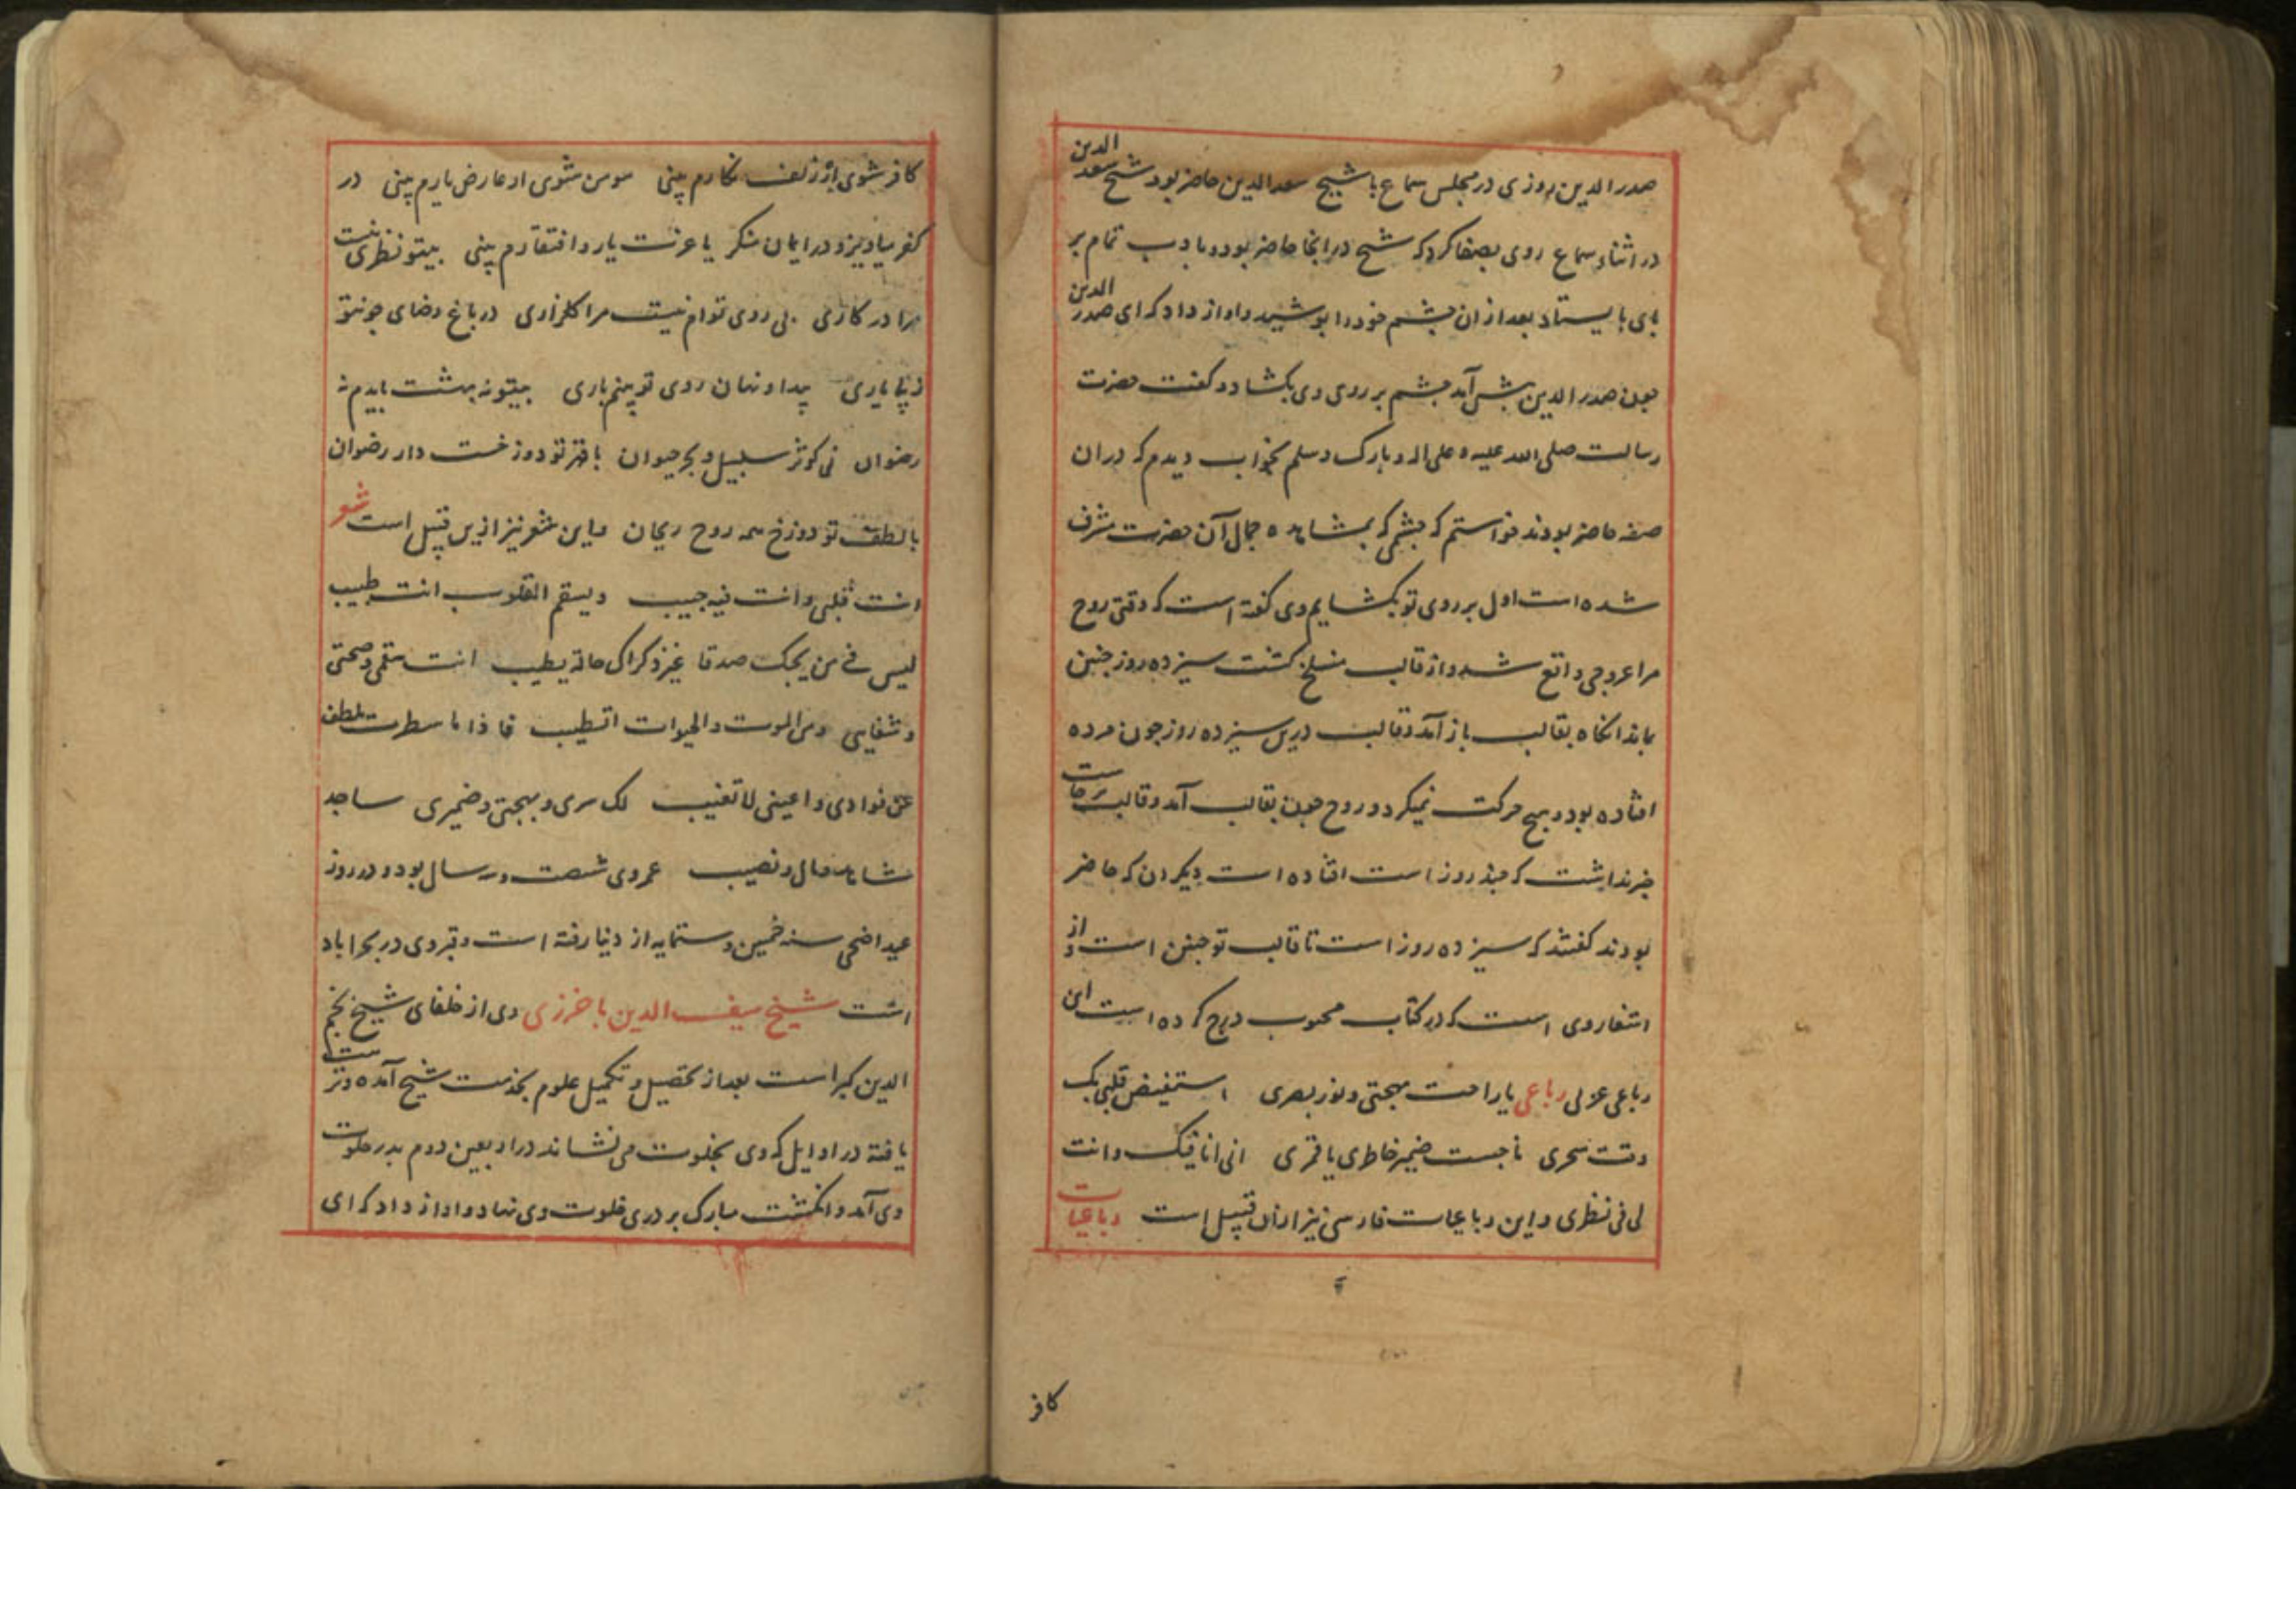 صدر الدین روزی در مجلس سماع با شیخ سعد الدین حاضر بود شیخ سعد الدین
در اثناء سماع روی بصفا کرد که شیخ در انجا حاضر بود و بادب تمام بر
پای بایستاد بعد از ان چشم خود را بپوشید و اواز داد که ای صدر الدین
چون صدر الدین پیش آمد چشم بر روی وی بکشاد و کفت حضرت
رسالت صلی الله علیه و علی اله و بارک و سلم بخواب دیدم که دران
صفه حاضر بودند خواستم که چشمی که بمشاهده جمال آن حضرت مشرف
شده است اول بر روی تو بکشایم وی کفته است که وقتی روح
مرا عروجی واقع شد و از قالب منسلخ کشت سیزده روز چنین
بماند انکاه بقالب باز آمد و قالب درین سیزده روز چون مرده
افتاده بود و هیچ حرکت نمیکرد و روح چون بقالب آمد و قالب برخاست
خبر نداشت که چند روز است افتاده است دیکران که حاضر
بودند کفتند که سیزده روز است تا قالب تو چنین است و از
اشعار وی است که در کتاب محبوب درج کرده است این
رباعی عربی رباعی یا راحت مهجتی و نور بصری استیقض قلبی بک
وقت سحری ناجیت ضمیر خاطری یا قمری انی انا فیک و انت
لی فی نظری و این رباعیات فارسی نیز ازان قبیل است رباعیات
کافر
کافر شوی ار زلف نکارم بینی مومن شوی ار عارض یارم بینی در
کفر میاویز و در ایمان منکر یا عزت یار و افتقارم بینی بیتو نظری نیست
مرا در کاری بی روی توام نیست مرا کلزاری در باغ رضای چونتو
زیبا یاری پیدا و نهان روی تو بینم باری بیتو نه بهشت بایدم نه
رضوان نی کوثر سلسبیل و بحر حیوان با قهر تو دوزخست دار رضوان
با لطف تو دوزخ همه روح ریحان و این شعر نیز ازین قبیل است شعر
انت قلبی و انت فیه حبیب و لسقم القلوب انت طبیب
لیس فی من یحبک صدقا غیر ذکراک حالة یطیب انت سقمی و صحتی
و شفایی و من الموت و الحیوات اتطیب فاذا ما سطرت بلطف
عن فوادی و اعینی لا تغیب لک سری و بهجتی و ضمیری ساجد
شاهد و مال و نصیب عمر وی شصت و سه سال بود و در روز
عید اضحی سنه خمسین و ستمایه از دنیا رفته است و قبر وی در بحراباد
است شیخ سیف الدین باخرزی وی از خلفای شیخ نجم
الدین کبرا است بعد از تحصیل و تکمیل علوم بخدمت شیخ آمده و تربیت
یافته در اوایل که وی بخلوت می نشاند در اربعین دوم بدر خلوت
وی آمد و انکشت مبارک بر دری خلوت وی نهاد و اواز داد که ای